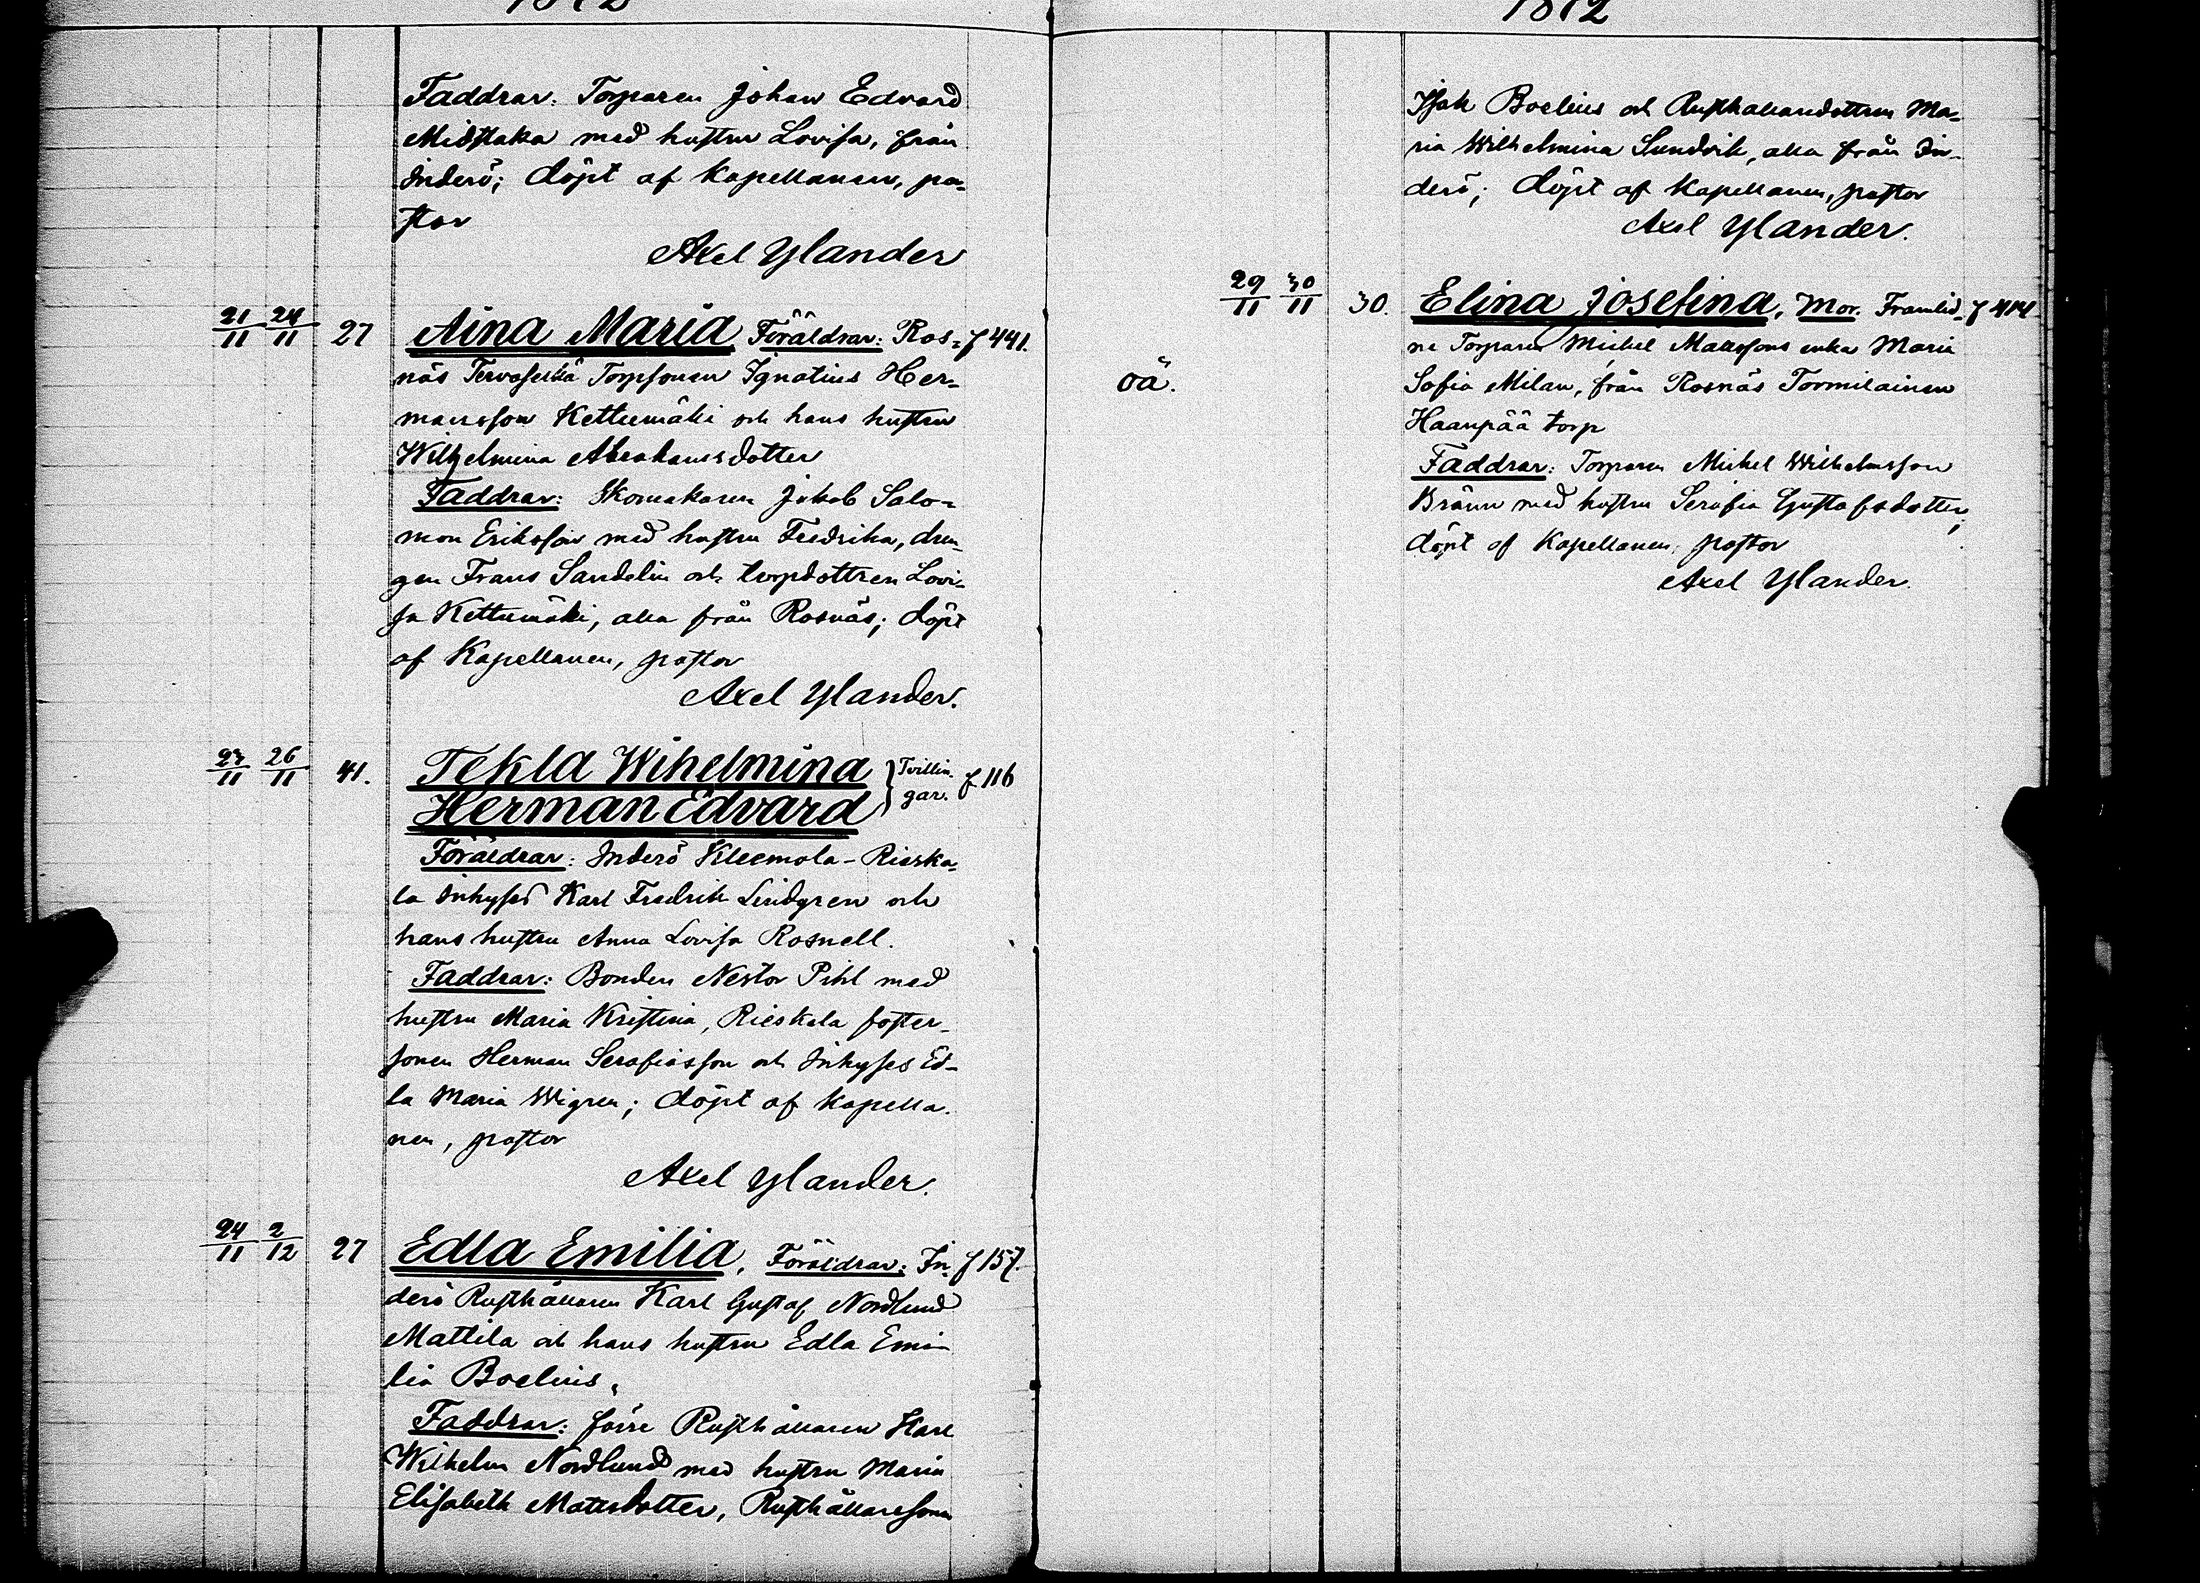 1872
Faddrar: Torparen Johan Edvard
Midstaka med hustru Lovisa, från
Inderö; döpt af Kapellanen, pa-
stor
Axel Ylander
21/11 24/11 27 Aina Maria Föräldrar: Ros- f 441.
näs Torpsonen Ignatius Her-
mansson Kettumäki och hans hustru
Wilhelmina Abrahamsdotter
Faddrar: Skomakaren Jakob Salo-
mon Eriksson med hustru Fredrika, drän-
gen Frans Sandelin och torpdottren Lovi-
sa Kettumäki, alla från Rosnäs; döpt
af Kapellanen, pastor
Axel Ylander.
23/11 26/11 41. Tekla Wihelmina } Tvillin- f 116
Herman Edvard gar.
Föräldrar: Inderö Kleemola-Rieska-
la Inhyses Karl Fredrik Lindgren och
hans hustru Anna Lovisa Rosnell.
Faddrar: Bonden Nestor Pihl med
hustru Maria Kristina, Rieskala foster-
sonen Herman Serafiasson och Inhyses Ed-
la Maria Wigren; döpt af Kapella-
nen, pastor
Axel Ylander.
24/11 2/12 27 Edla Emilia, Föräldrar: In- f 157.
derö Rusthållaren Karl Gustaf Nordlund
Mattila och hans hustru Edla Emi-
lia Boelius,
Faddrar: förre Rusthållaren Karl
Wilhelm Nordlund med hustru Maria
Elisabeth Matsdotter, Rusthållaresonen
1872
Isak Boelius och Rusthållaredottren Ma-
ria Wilhelmina Sundvik, alla från In-
derö; döpt af Kapellanen, pastor
Axel Ylander.
29/11 30/11 30. Elina Josefina, Mor. Framlid- f 414
ne Torparen Michel Matssons enka Maria
oä. Sofia Milan, från Rosnäs Tormilainen
Haanpää torp
Faddrar: Torparen Michel Wilhelmsson
Bränn med hustru Serafia Gustafsdotter;
döpt af Kapellanen, pastor
Axel Ylander.